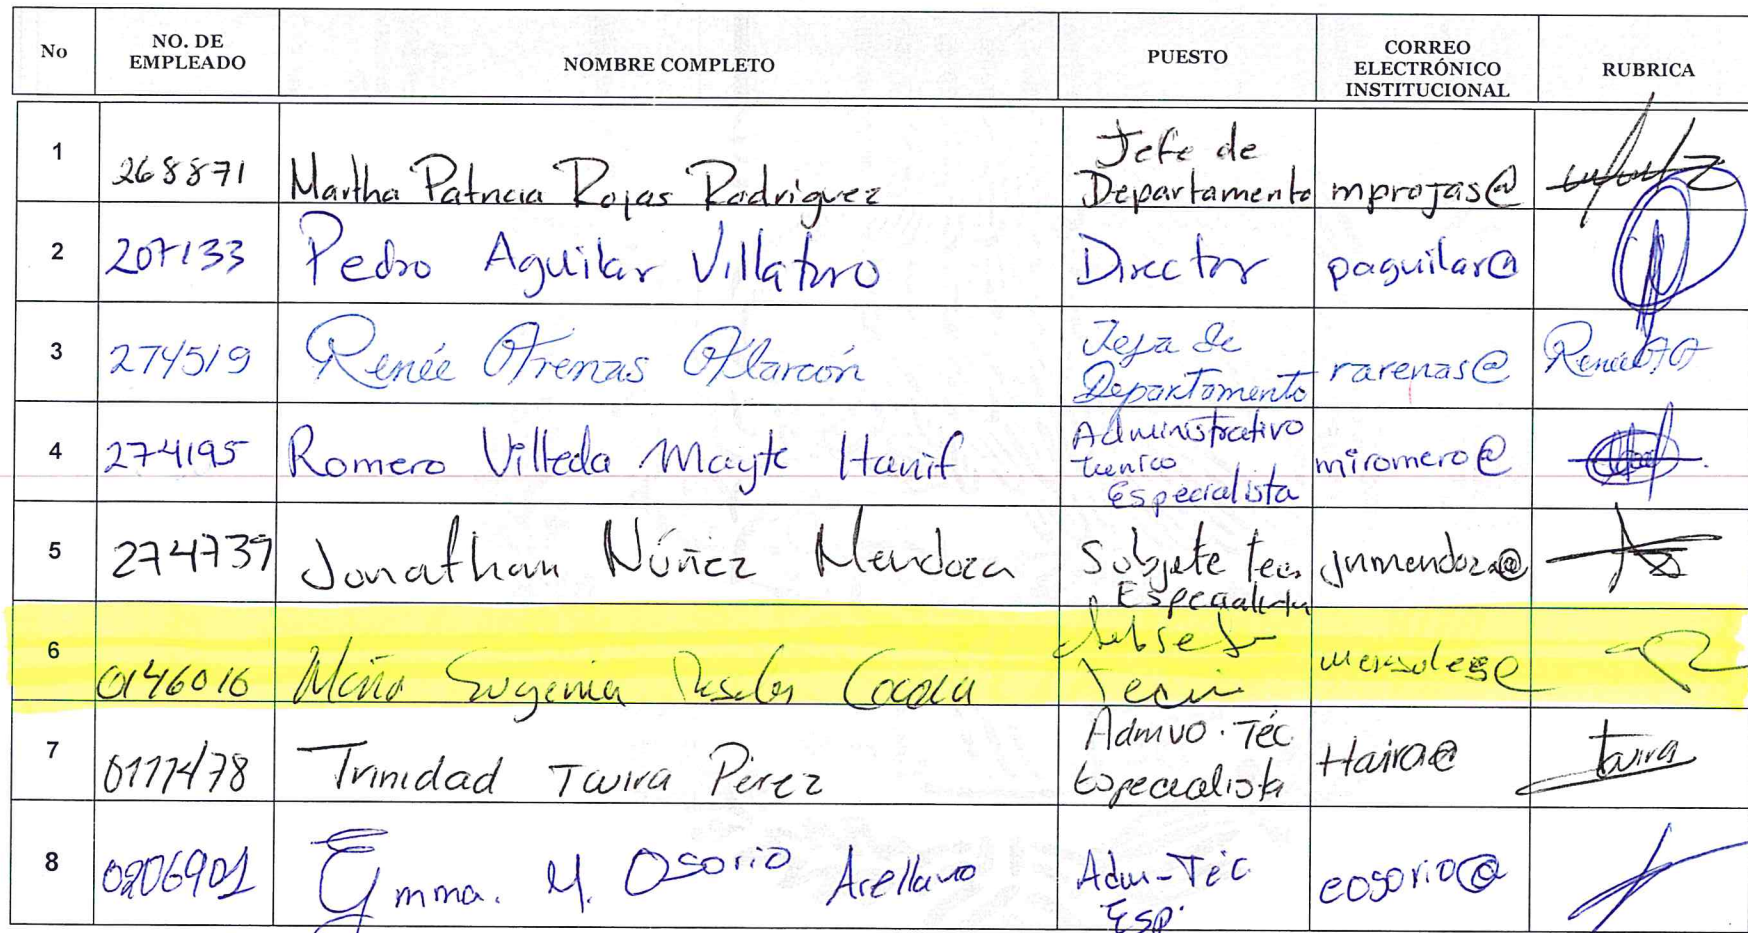 No NO. DE EMPLEADO NOMBRE COMPLETO PUESTO CORREO ELECTRÓNICO INSTITUCIONAL RUBRICA
1 268871 Martha Patricia Rojas Rodriguez Jefe de Departamento mprojas@
2 207133 Pedro Aguilar Villatoro Director paguilar@
3 274519 Renée Arenas Alarcón Jefa de Departamento rarenas@ Renée AA
4 274195 Romero Villeda Mayte Hanif Administrativo tecnico Especialista miromero@
5 274739 Jonathan Núñez Mendoza Subjefe tec. Especialista jnmendoza@
6 0146016 Eugenia
7 Trinidad Taira Pérez Admvo. Téc Especialista ttaira@ taira
8 0206901 Emma. M. Osorio Arellano Adm-Téc Esp. eosorio@